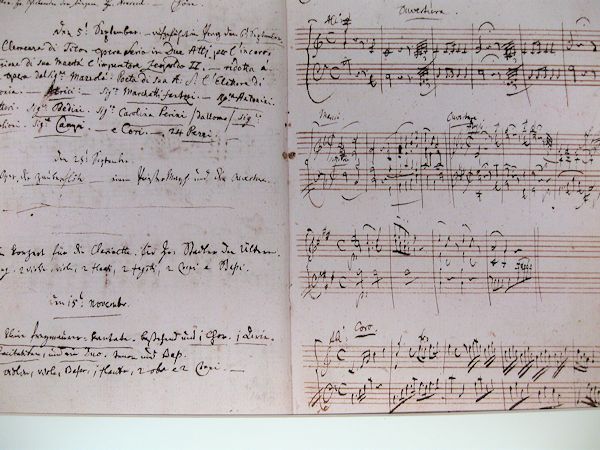 den 5:t September. — aufgeführt in Prag den 6:t September.
Clemenza di Tito. opera seria in Due Atti, per l'incoro-
zione di sua maestà l'imperatore Leopoldo II. — ridotta à
opera dal Sig:re Mazzolà. Poeta di sua A: S: l'Elettore di
Attrici: — Sig:ra Marchetti fantozi. — Sig:ra Antonini.
Sig:ra Bedini. Sig:ra Carolina Perini / da uomo / sig:re
Campi. — e Cori. — 24 Pezzi. —
den 28:t September.
die Zauberflöte — einen Priestermarsch und die Overture.
Konzert für die Clarinette. für Hr. Stadler den Ältern.
viole, 2 flauti, 2 fagotti, 2 Corni e Bassi.
den 15:t November.
kleine freymaurer-kantate. bestehend aus 1 Chor. 1 Arie.
Recitativen, und ein Duo. tenor und Bass.
violini, viola, Basso, 1 flauto, 2 oboe e 2 Corni. —
Ouverture.
All:o
Marcia Overtura
All:o Coro.